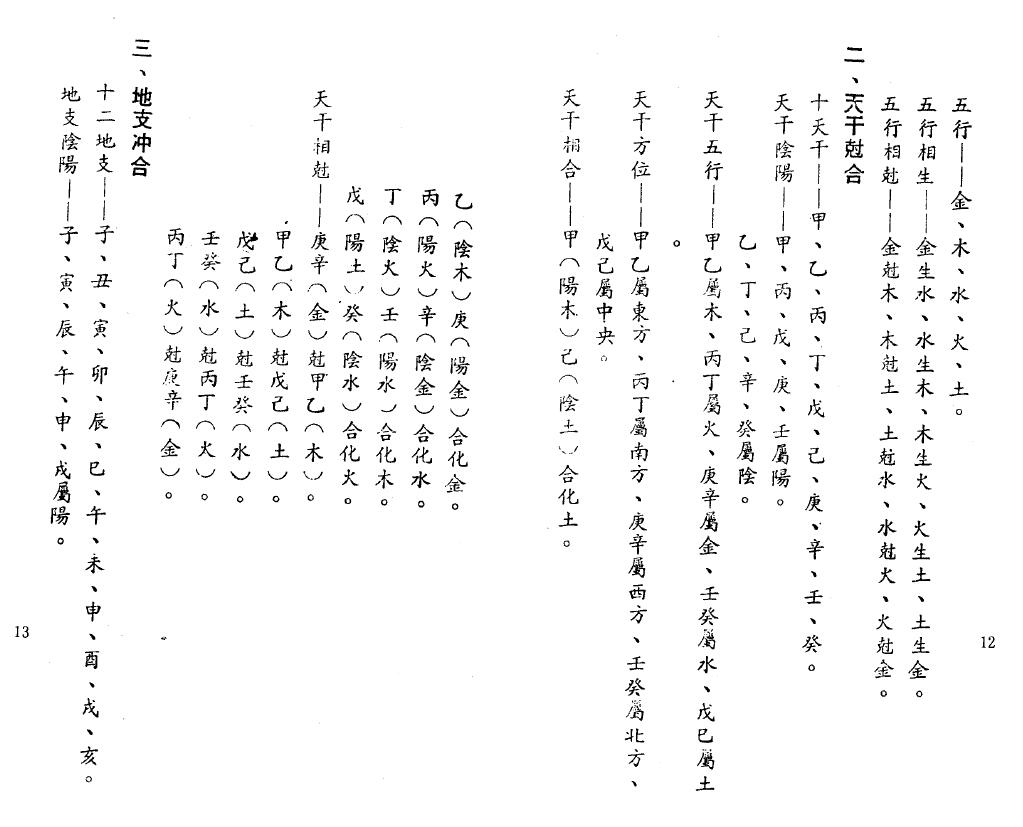 五行——金、木、水、火、土。
五行相生——金生水、水生木、木生火、火生土、土生金。
五行相尅——金尅木、木尅土、土尅水、水尅火、火尅金。
二、天干尅合
十天干——甲、乙、丙、丁、戊、己、庚、辛、壬、癸。
天干陰陽——甲、丙、戊、庚、壬屬陽。
乙、丁、己、辛、癸屬陰。
天干五行——甲乙屬木、丙丁屬火、庚辛屬金、壬癸屬水、戊己屬土
。
天干方位——甲乙屬東方、丙丁屬南方、庚辛屬西方、壬癸屬北方、
戊己屬中央。
天干相合——甲（陽木）己（陰土）合化土。
12
乙（陰木）庚（陽金）合化金。
丙（陽火）辛（陰金）合化水。
丁（陰火）壬（陽水）合化木。
戊（陽土）癸（陰水）合化火。
天干相尅——庚辛（金）尅甲乙（木）。
甲乙（木）尅戊己（土）。
戊己（土）尅壬癸（水）。
壬癸（水）尅丙丁（火）。
丙丁（火）尅庚辛（金）。
三、地支冲合
十二地支——子、丑、寅、卯、辰、巳、午、未、申、酉、戌、亥。
地支陰陽——子、寅、辰、午、申、戌屬陽。
13